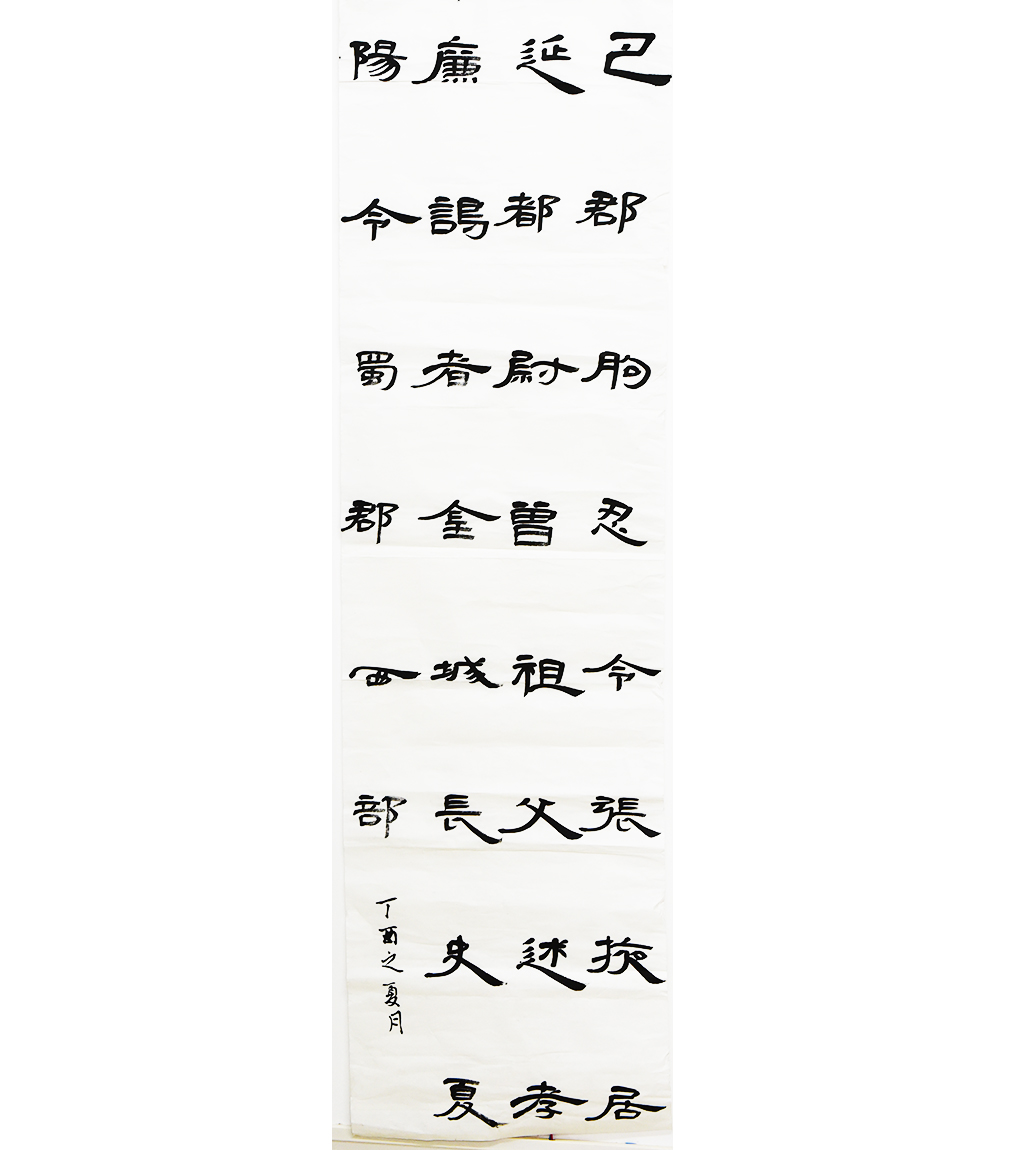 巴郡朐忍令張掖居
延都尉曾祖父述孝
廉謁者金城長史夏
陽令蜀郡西部
丁酉之夏月